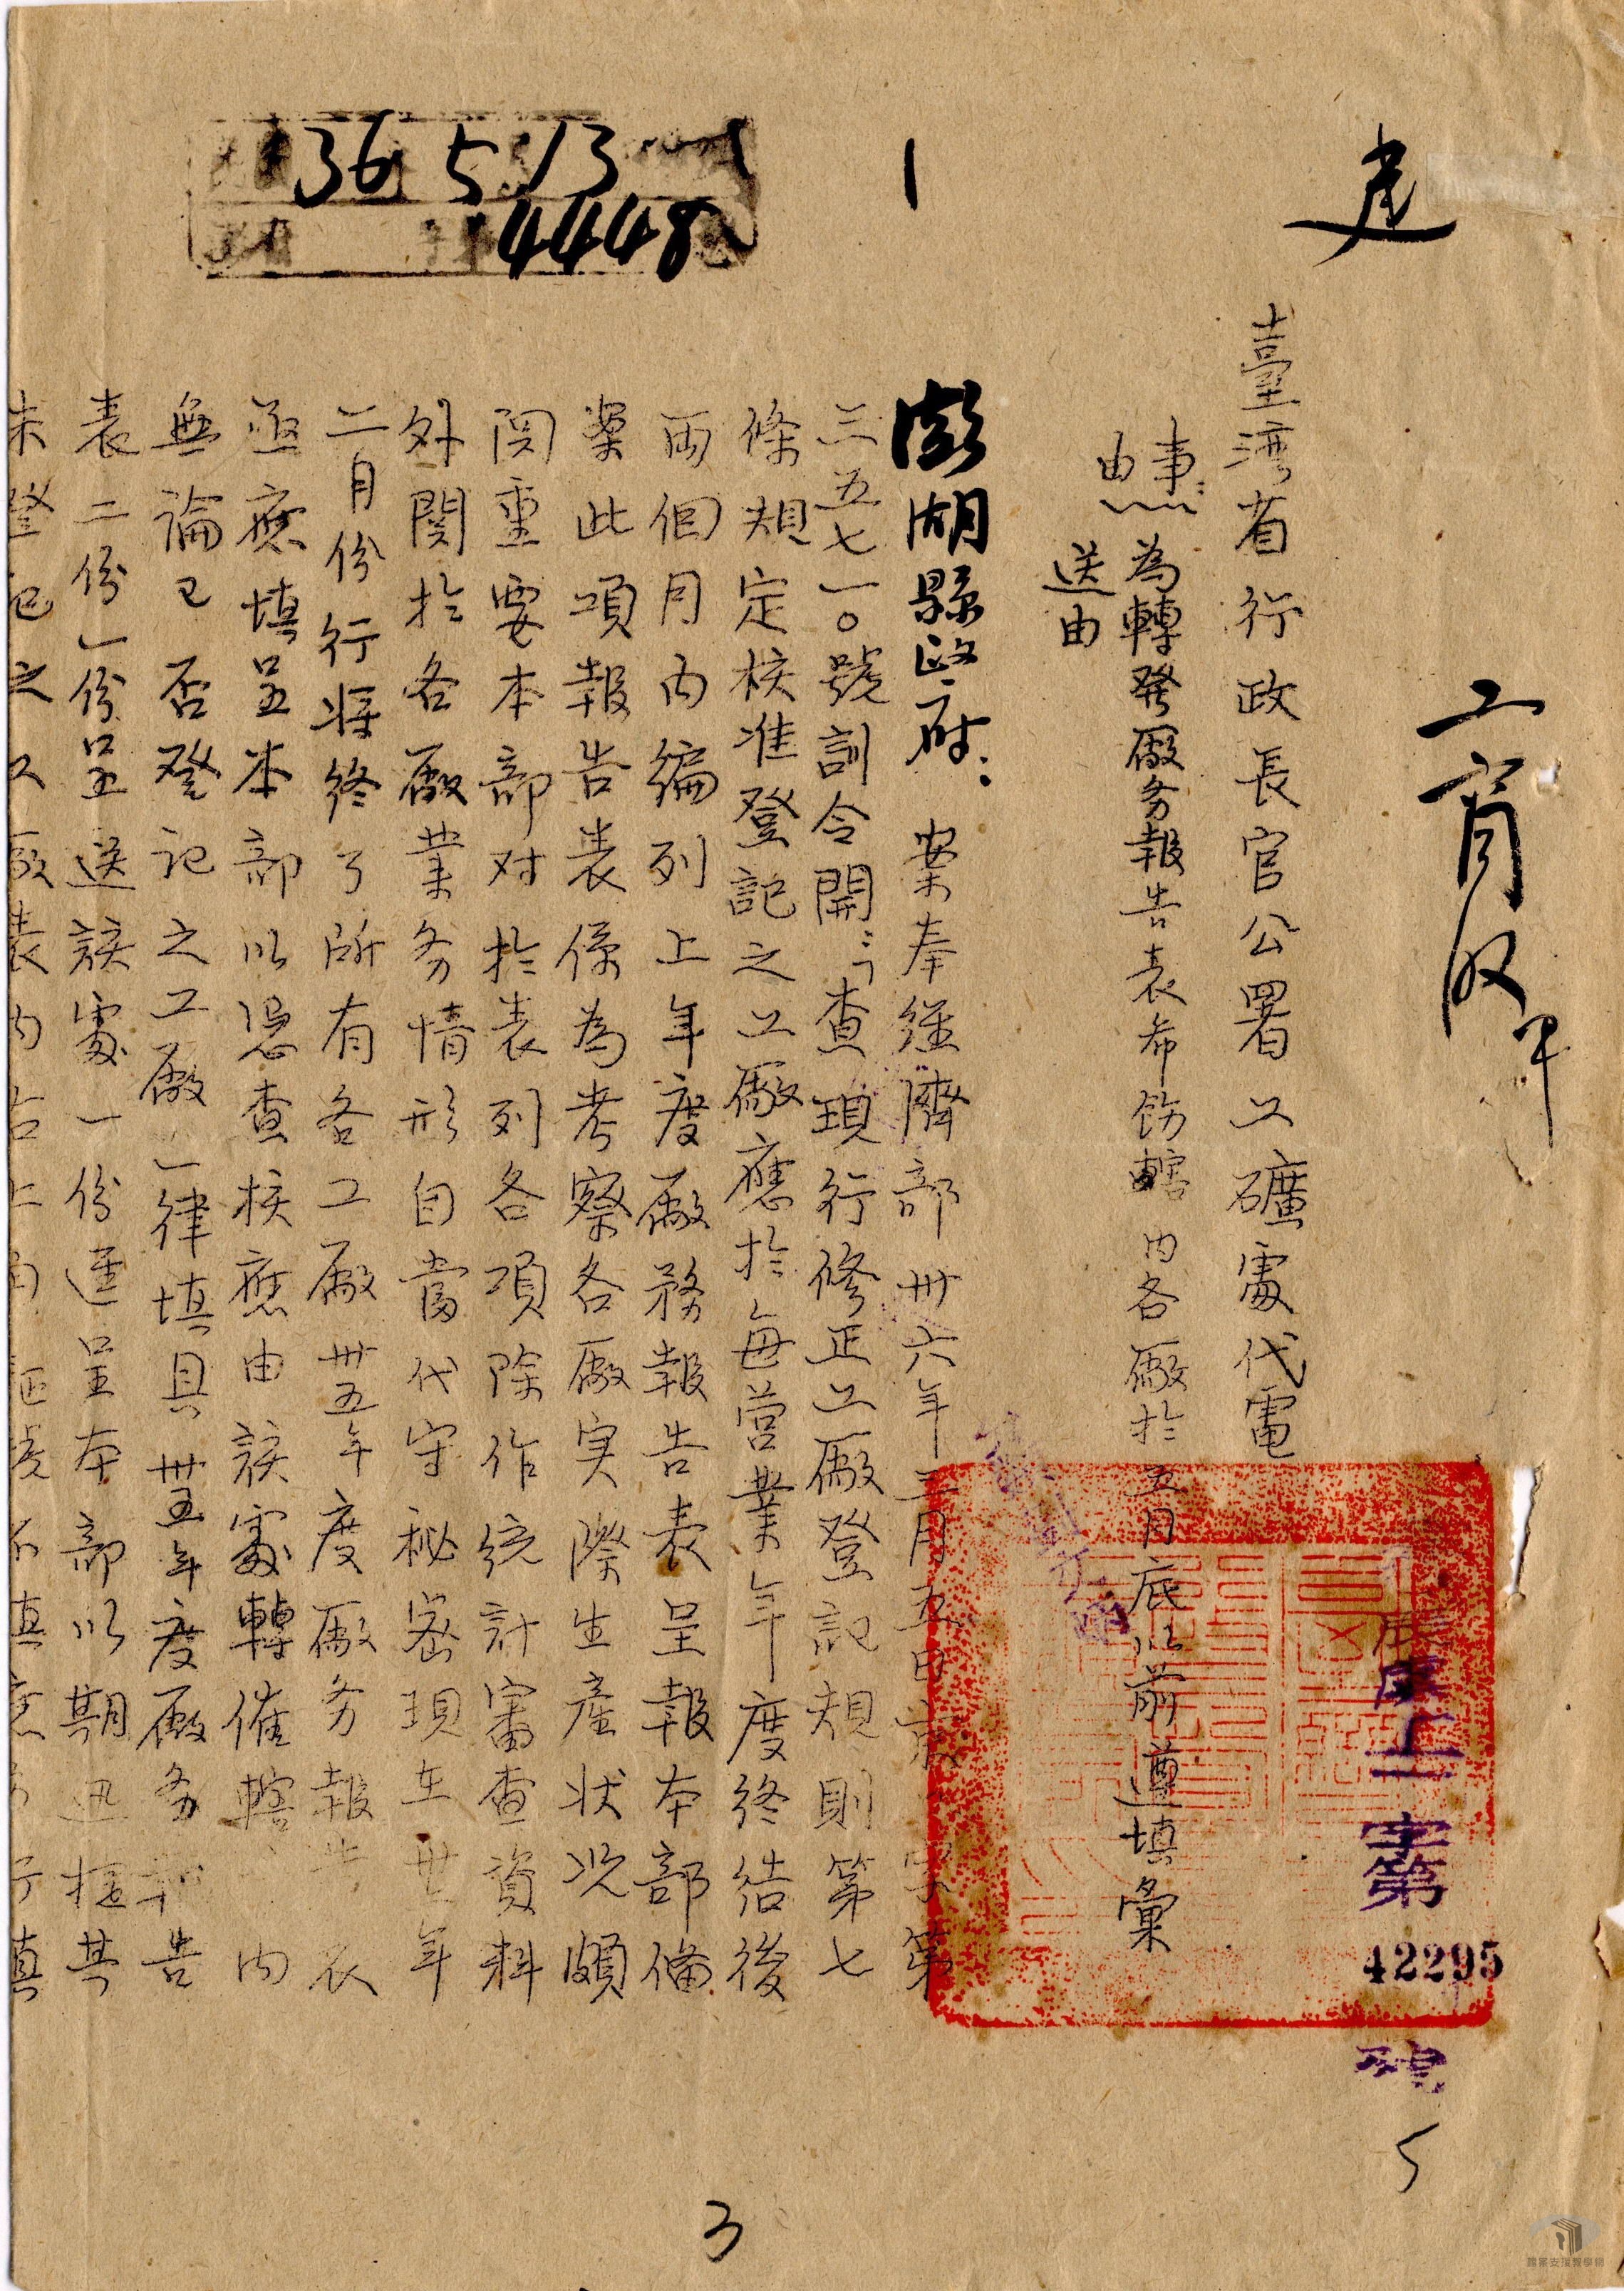 建
1
36 5 13
4448
臺湾省行政長官公署工礦處代電
事由
為轉發廠务報告表希飭轄内各廠於五月底以前遵填彙
送由
工字第
42295
號
澎湖縣政府：案奉經濟部卅六年三月五日京 字第
三五七一〇號訓令開：「查現行修正工廠登記規則第七
條規定核准登記之工廠應於每营業年度終结後
両個月内編列上年度廠務報告表呈報本部備
案此項報告表係為考察各廠实際生產状况頗
関重要本部对於表列各項除作统計審查資料
外関於各廠業务情形自當代守秘密現在卅六年
二月份行将終了所有各工廠卅五年度廠务報告表
亟應填呈本部以憑查核應由該處轉催轄内
無論已否登记之工廠一律填具卅五年度廠务報告
表二份一份呈送該處一份逕呈本部以期迅捷其
未登记之工廠表内右上角 號不填應 予填
3